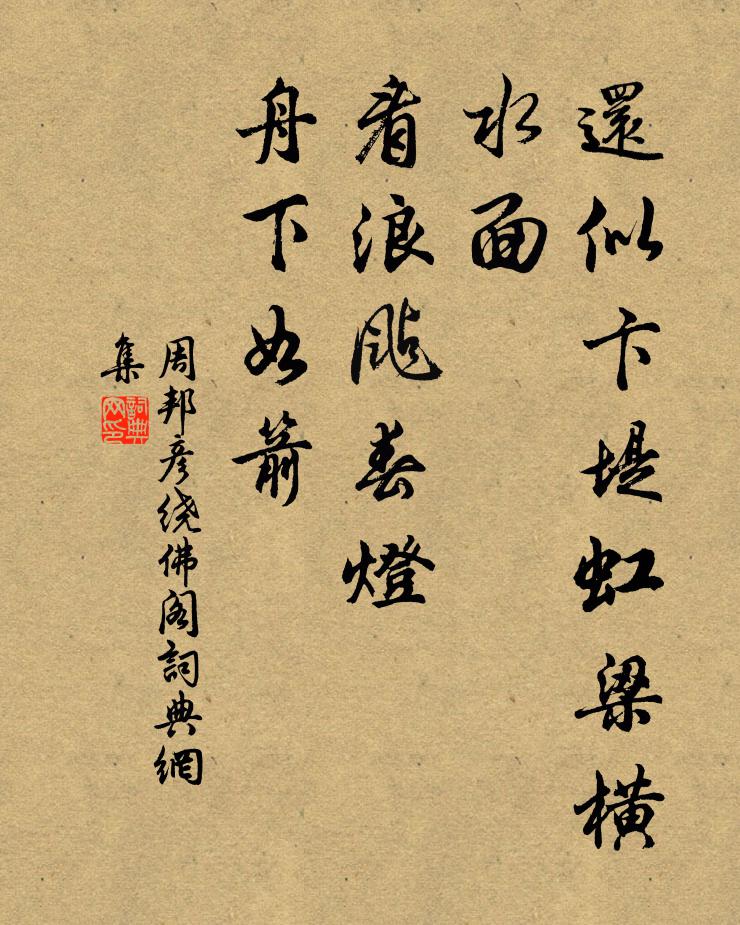 還似卞堤虹梁橫
水面
看浪颭春燈
舟下如箭
周邦彦绕佛阁詞典網
集
詞典
网印